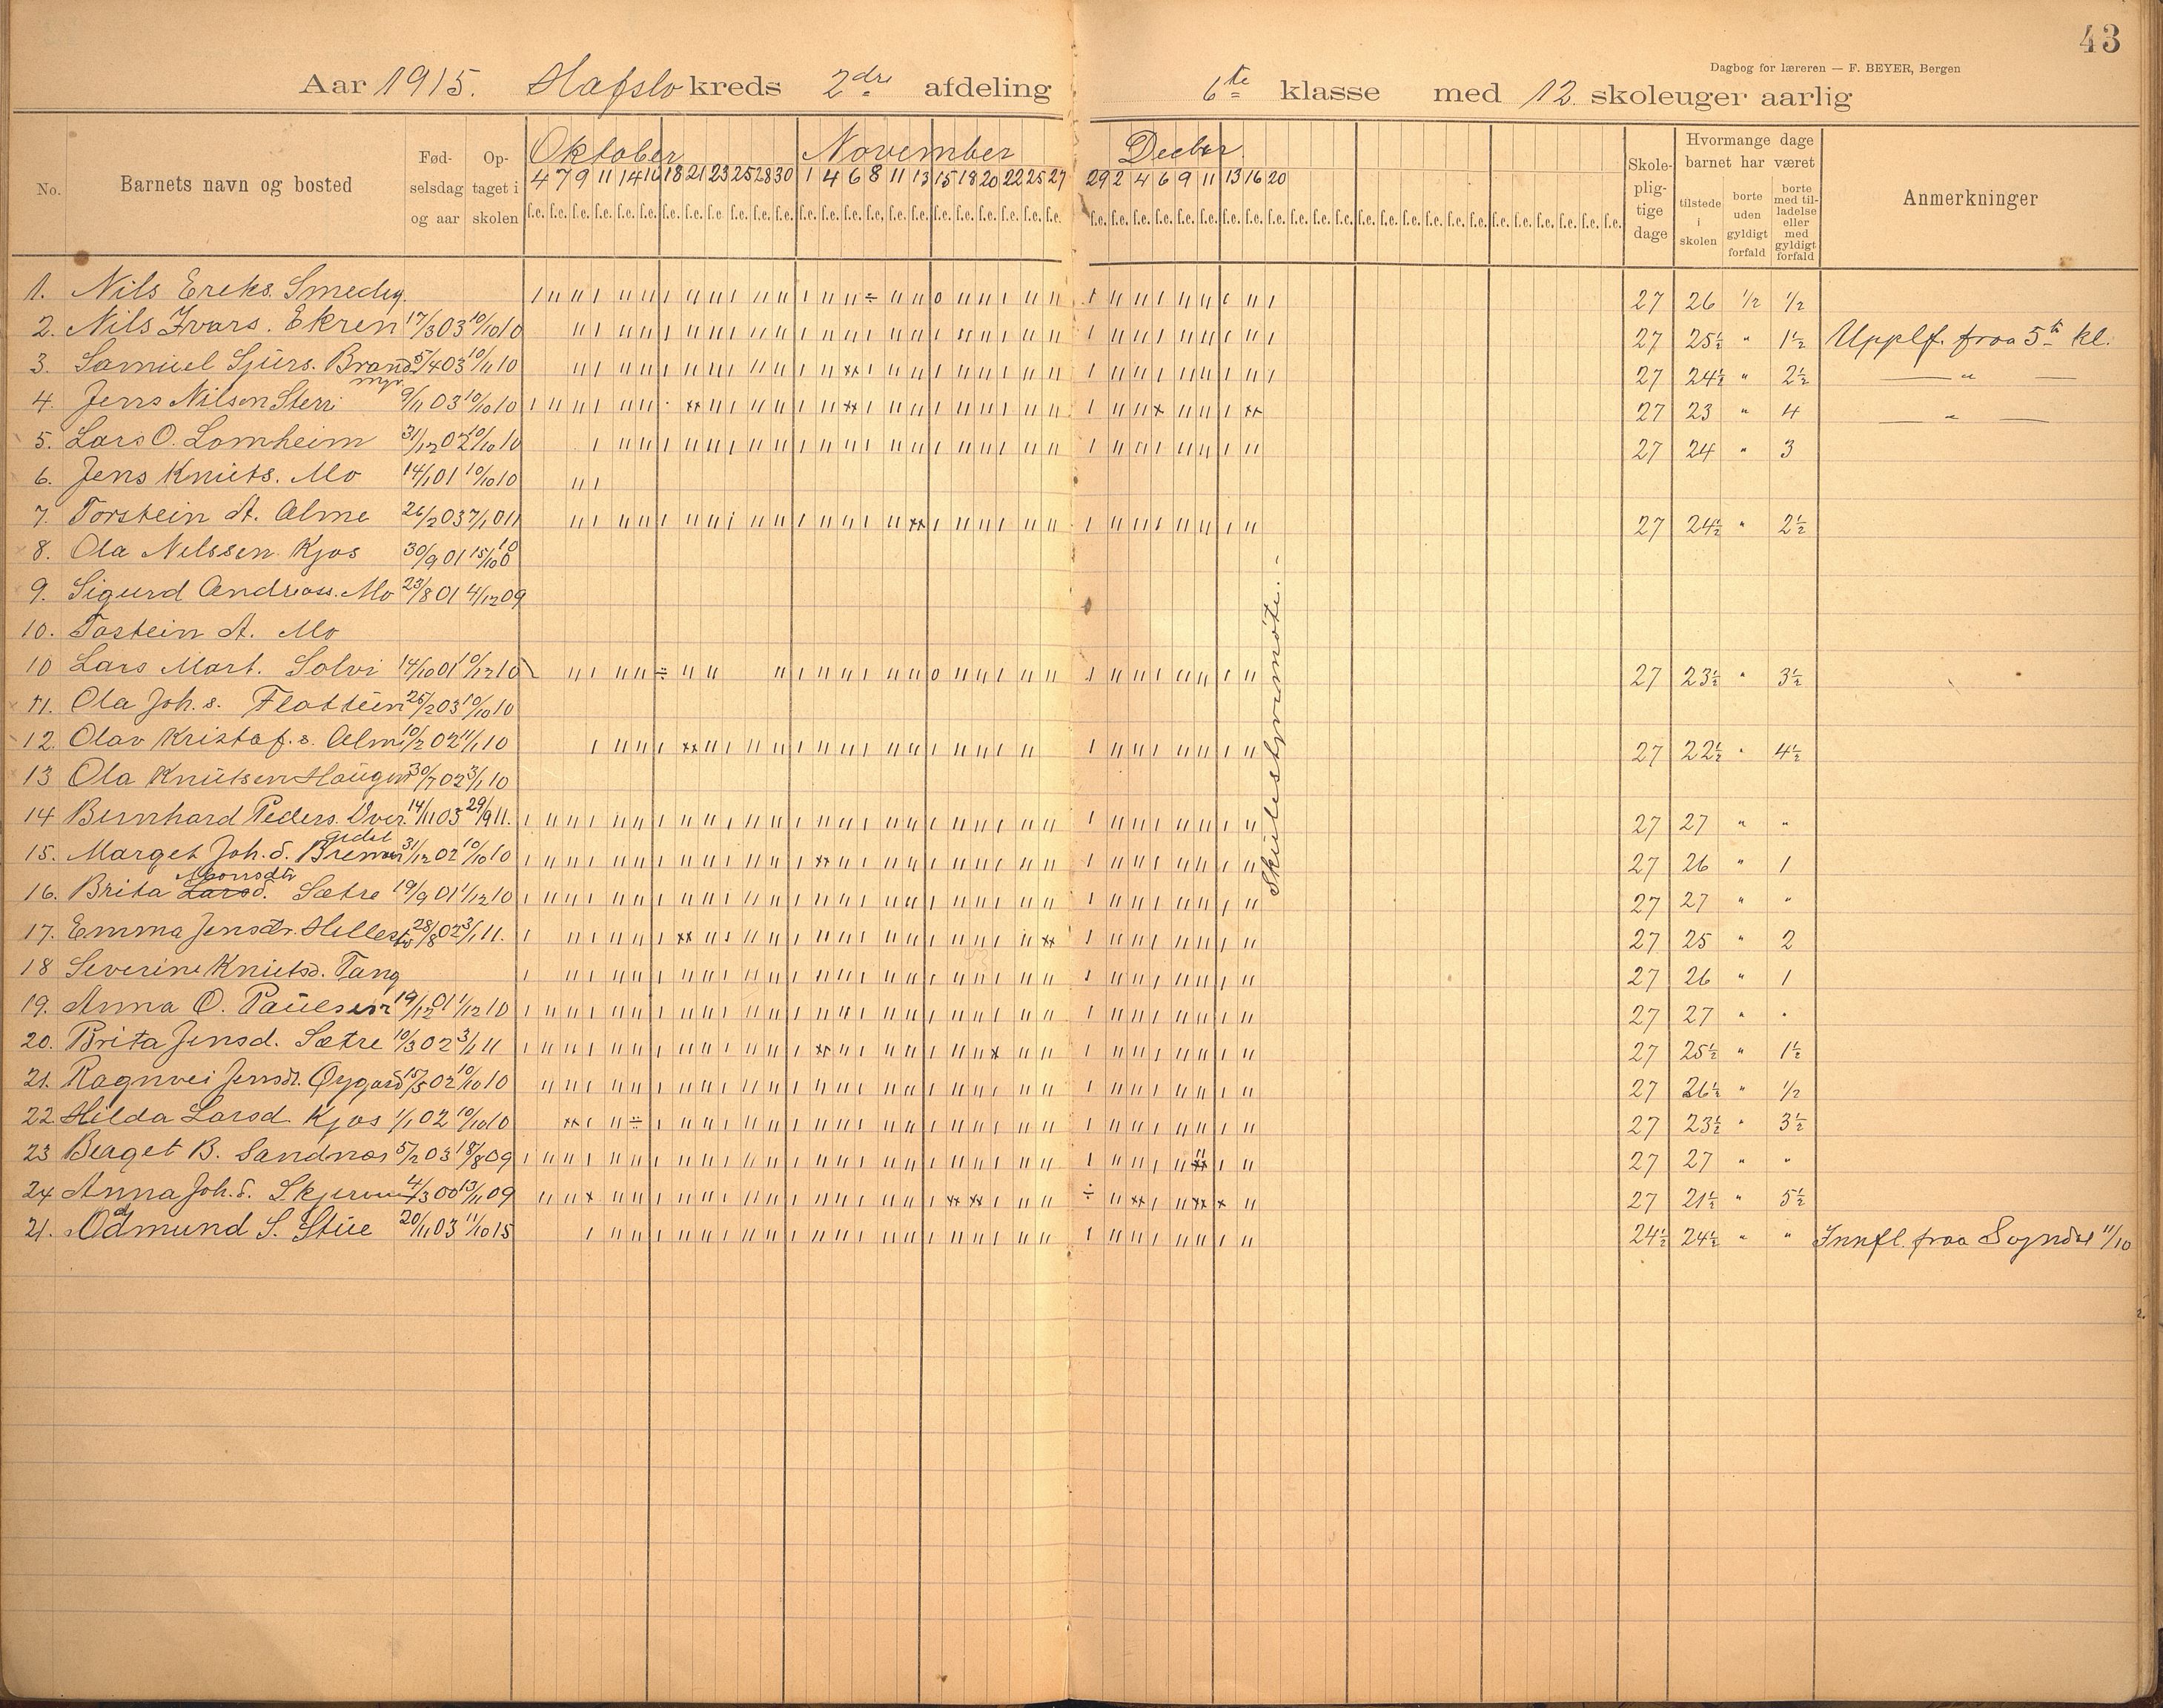 43
Dagbog for læreren — F. BEYER, Bergen
Aar 1915. Hafslo kreds 2dre afdeling 6te klasse med 12 skoleuger aarlig
No. Barnets navn og bosted Fød-selsdag og aar Op-taget i skolen Oktober November Decbr. Skole-plig-tige dage Hvormange dage barnet har været tilstede i skolen borte uden gyldigt forfald borte med til-ladelse eller med gyldigt forfald Anmerkninger
4 7 9 11 14 16 18 21 23 25 28 30 1 4 6 8 11 13 15 18 20 22 25 27 29 2 4 6 9 11 13 16 20
1. Nils Ereks. Smedeg. 27 26 1/2 1/2
2. Nils Ivars. Ekren 17/3 03 10/10 10 27 25½ " 1½ Upplf. fraa 5te kl.
3. Samuel Sjurs. Brandsmyr 5/4 03 10/11 10 27 24½ " 2½ — " —
4. Jens Nilsen Sterri 9/11 03 10/10 10 27 23 " 4 — " —
5. Lars O. Lomheim 31/12 02 10/10 10 27 24 " 3
6. Jens Knuts. Mo 14/1 01 10/10 10
7. Torstein A. Alme 26/2 03 7/10 11 27 24½ " 2½
8. Ola Nelssen Kjos 30/9 01 15/10
9. Sigurd Andreass. Mo 23/8 01 4/12 09
10. Tostein A. Mo
10 Lars Mart. Solvi 14/10 01 10/12 10 27 23½ " 3½
11. Ola Joh. s. Flatteen 25/2 03 10/10 10
12. Olav Kristof. s. Alm 10/2 02 11/1 10 27 22½ " 4½
13 Ola Knutsen Haugen 30/7 02 3/1 10
14 Bernhard Peders. Over 14/11 03 29/9 11. 27 27 " "
15. Marget Joh. d. 31/12 02 10/10 10 27 26 " 1
16. Brita Larsd. Monsdtr Sætre 19/9 01 1/12 10 27 27 " "
17. Emma Jensdr. Hillestø 28/8 02 3/1 11. 27 25 " 2
18 Severine Knutsd. Tang 27 26 " 1
19. Anna O. Paulsen 19/12 01 1/12 10 27 27 " "
20. Brita Jensd. Sætre 10/3 02 3/1 11 27 25½ " 1½
21. Ragnvei Jensdr. Øygard 15/5 02 10/10 10 27 26½ " 1/2
22. Hilda Larsd. Kjos 1/1 02 10/10 10 27 23½ " 3½
23 Berget B. Sandnæs 5/2 03 18/8 09 27 27 " "
24 Anna Joh. d. 4/3 00 13/11 09 27 21½ " 5½
21. Odmund S. Stue 20/11 03 11/10 15 24½ 24½ " " Innfl. fraa Sogndal 11/10
Skulestyrarmøte. —